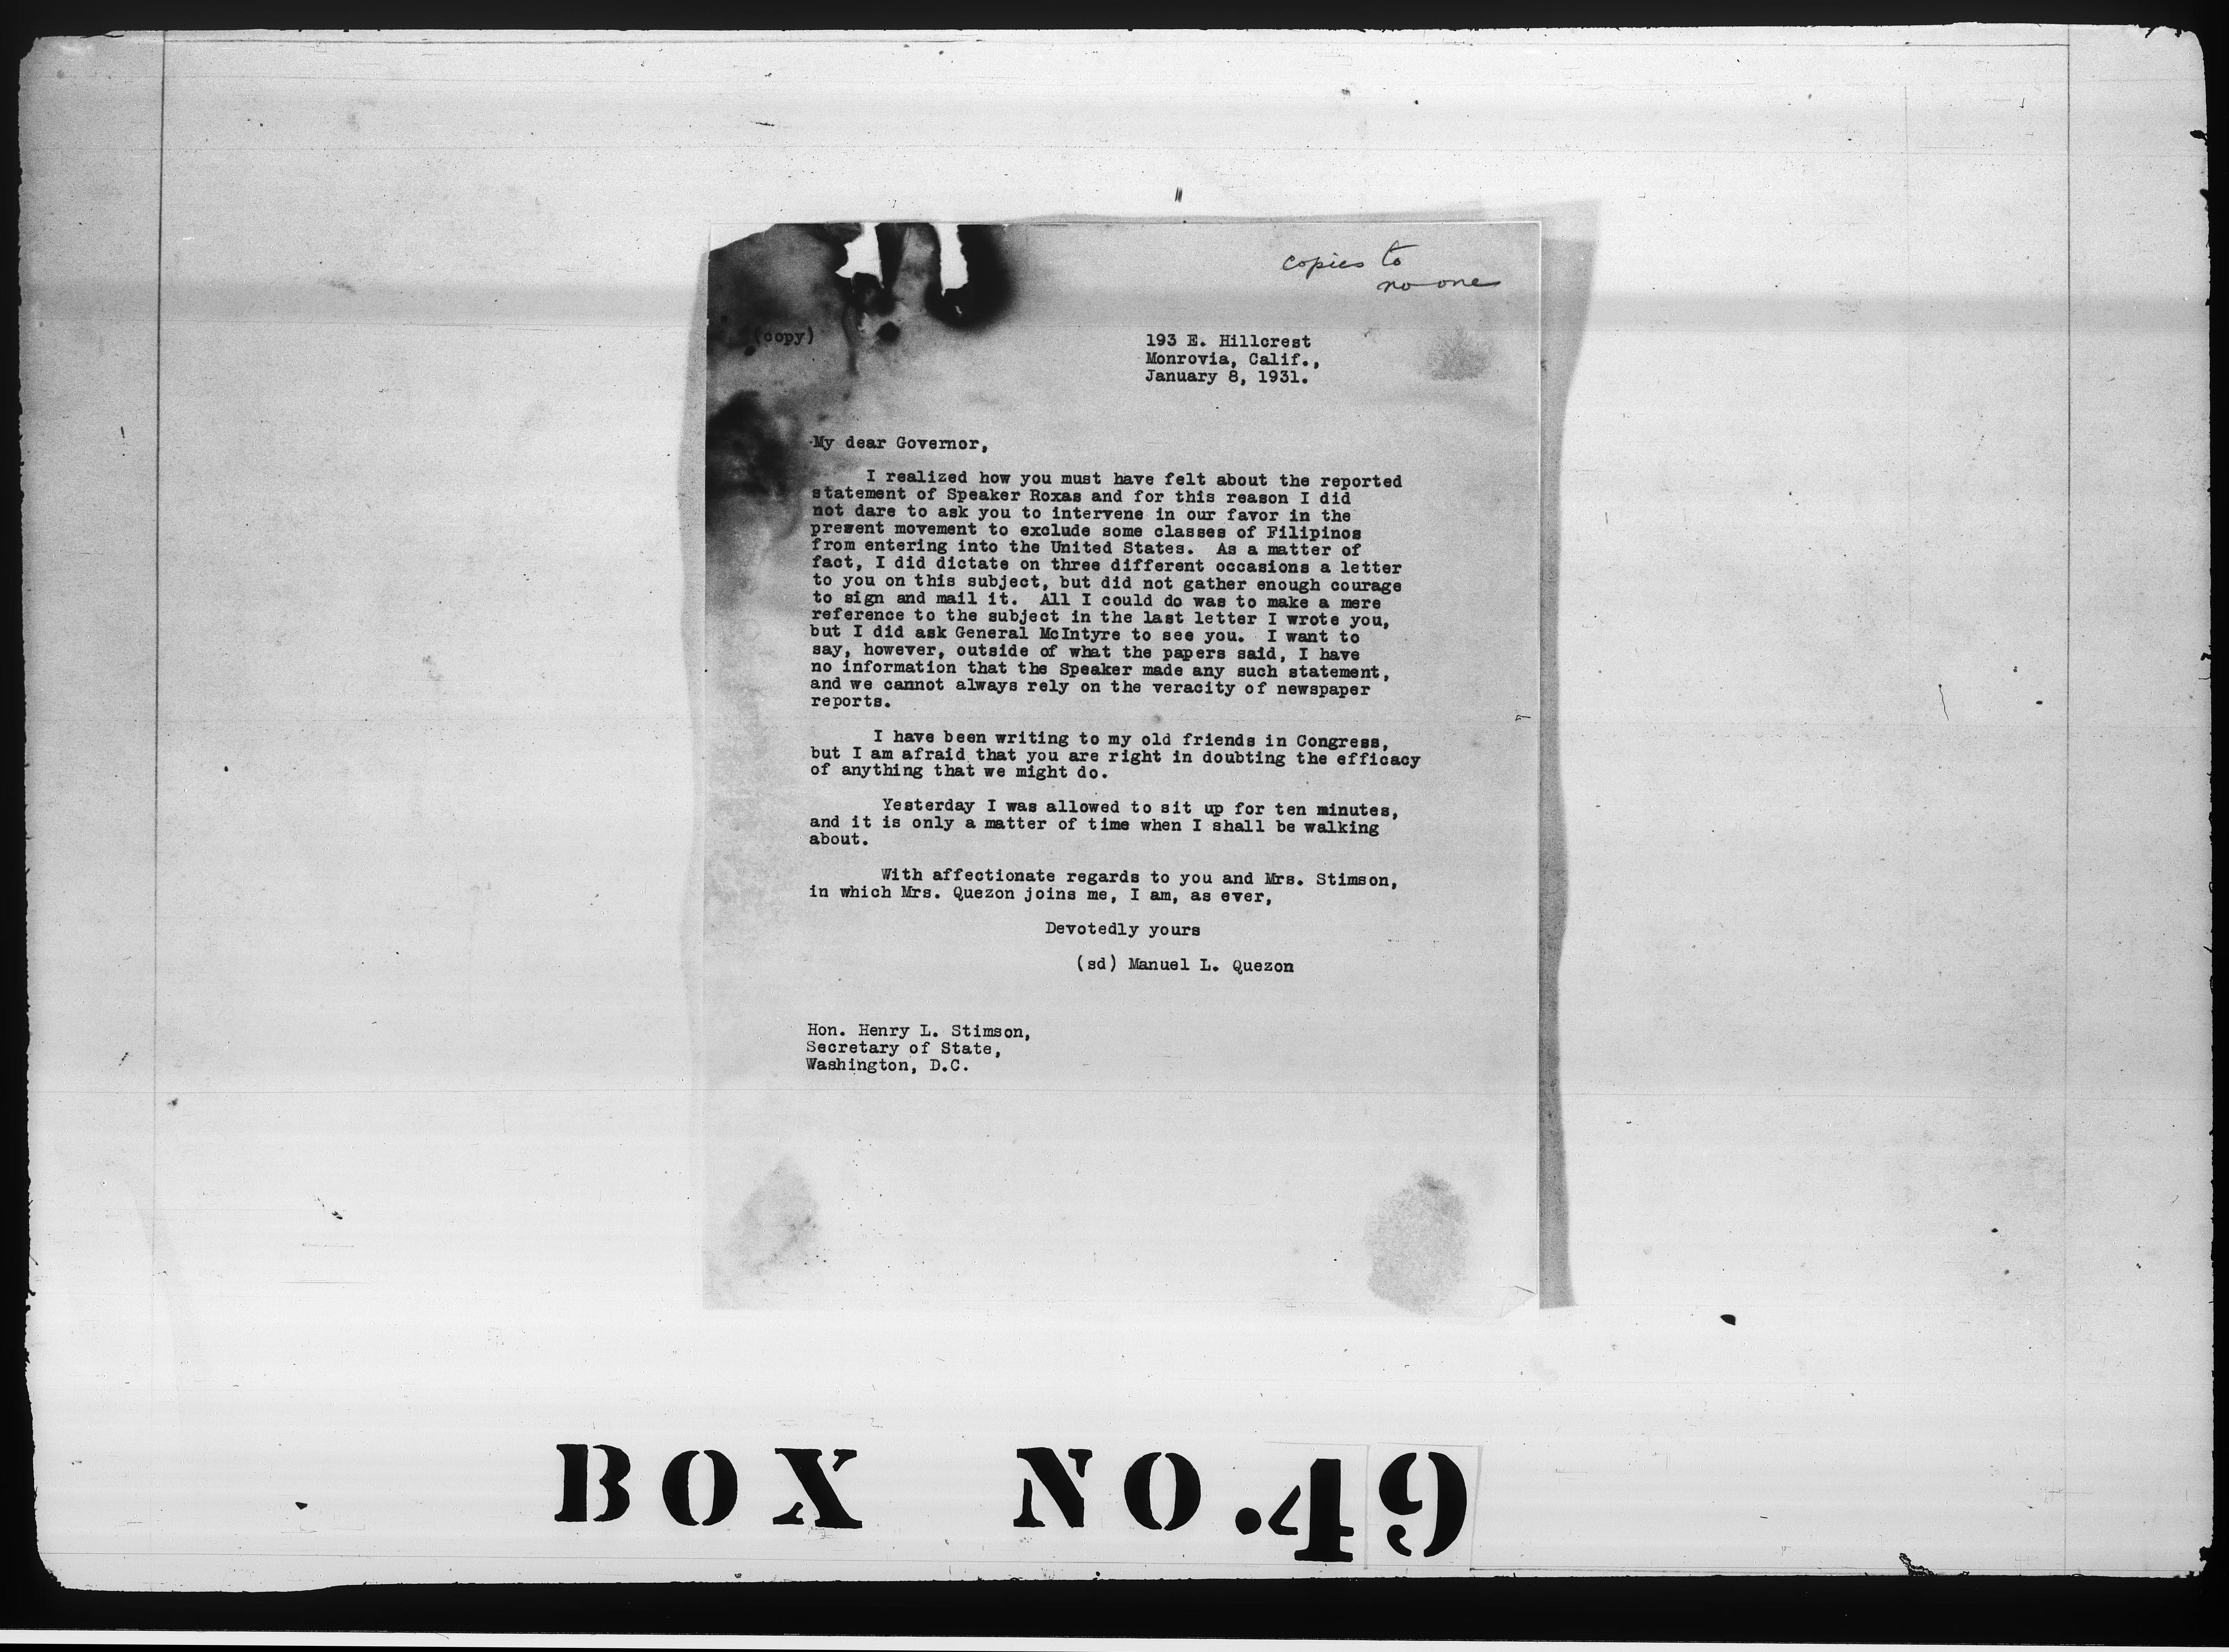 copies to
no one
(copy)
193 E. Hillcrest
Monrovia, Calif.,
January 8, 1931.
My dear Governor,
I realized how you must have felt about the reported
statement of Speaker Roxas and for this reason I did
not dare to ask you to intervene in our favor in the
present movement to exclude some classes of Filipinos
from entering into the United States. As a matter of
fact, I did dictate on three different occasions a letter
to you on this subject, but did not gather enough courage
to sign and mail it. All I could do was to make a mere
reference to the subject in the last letter I wrote you,
but I did ask General McIntyre to see you. I want to
say, however, outside of what the papers said, I have
no information that the Speaker made any such statement,
and we cannot always rely on the veracity of newspaper
reports.
I have been writing to my old friends in Congress,
but I am afraid that you are right in doubting the efficacy
of anything that we might do.
Yesterday I was allowed to sit up for ten minutes,
and it is only a matter of time when I shall be walking
about.
With affectionate regards to you and Mrs. Stimson,
in which Mrs. Quezon joins me, I am, as ever,
Devotedly yours
(sd) Manuel L. Quezon
Hon. Henry L. Stimson,
Secretary of State,
Washington, D.C.
BOX NO.49